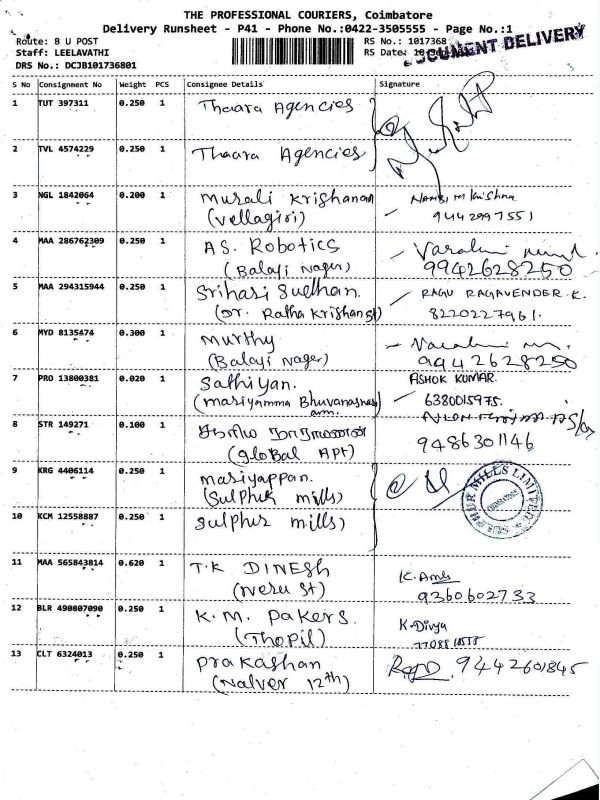 THE PROFESSIONAL COURIERS, Coimbatore
Delivery Runsheet - P41 - Phone No.:0422-3505555 - Page No.:1
Route: B U POST
RS No.: 1017368
DOCUMENT DELIVERY
Staff: LEELAVATHI
RS Date:
DRS No.: DCJB101736801
S No Consignment No Weight PCS Consignee Details Signature
1 TUT 397311 0.250 1 Thaara Agencies
2 TVL 4574229 0.250 1 Thaara Agencies
3 NGL 1842064 0.200 1 Murali Krishanan
(Vellagiri)
9442997551
4 MAA 286762309 0.250 1 AS. Robotics
(Balaji Nager)
9942628250
5 MAA 294315944 0.250 1 Srihari Sudhan.
RAGU RAGAVENDER.K.
(Dr. Ratha Krishanan st)
8220227961.
6 MYD 8135474 0.300 1 Murthy
(Balaji Nager)
9942628250
7 PRO 13800381 0.020 1 Sathiyan.
ASHOK KUMAR.
(mariyamma
6380015975.
8 STR 149271 0.100 1
(Global Apt)
9486301146
9 KRG 4406114 0.250 1 Mariyappan.
(Sulphur mills)
SULPHUR MILLS LIMITED
COIMBATORE
10 KCM 12558887 0.250 1 Sulphur mills)
11 MAA 565843814 0.620 1 T.K DINESH
(Neru st)
9360602733
12 BLR 490807090 0.250 1 K.M. Pakers.
K.Divya
(Thopil)
13 CLT 6324013 0.250 1 Prakashan
9442601845
(Nalver 12th)